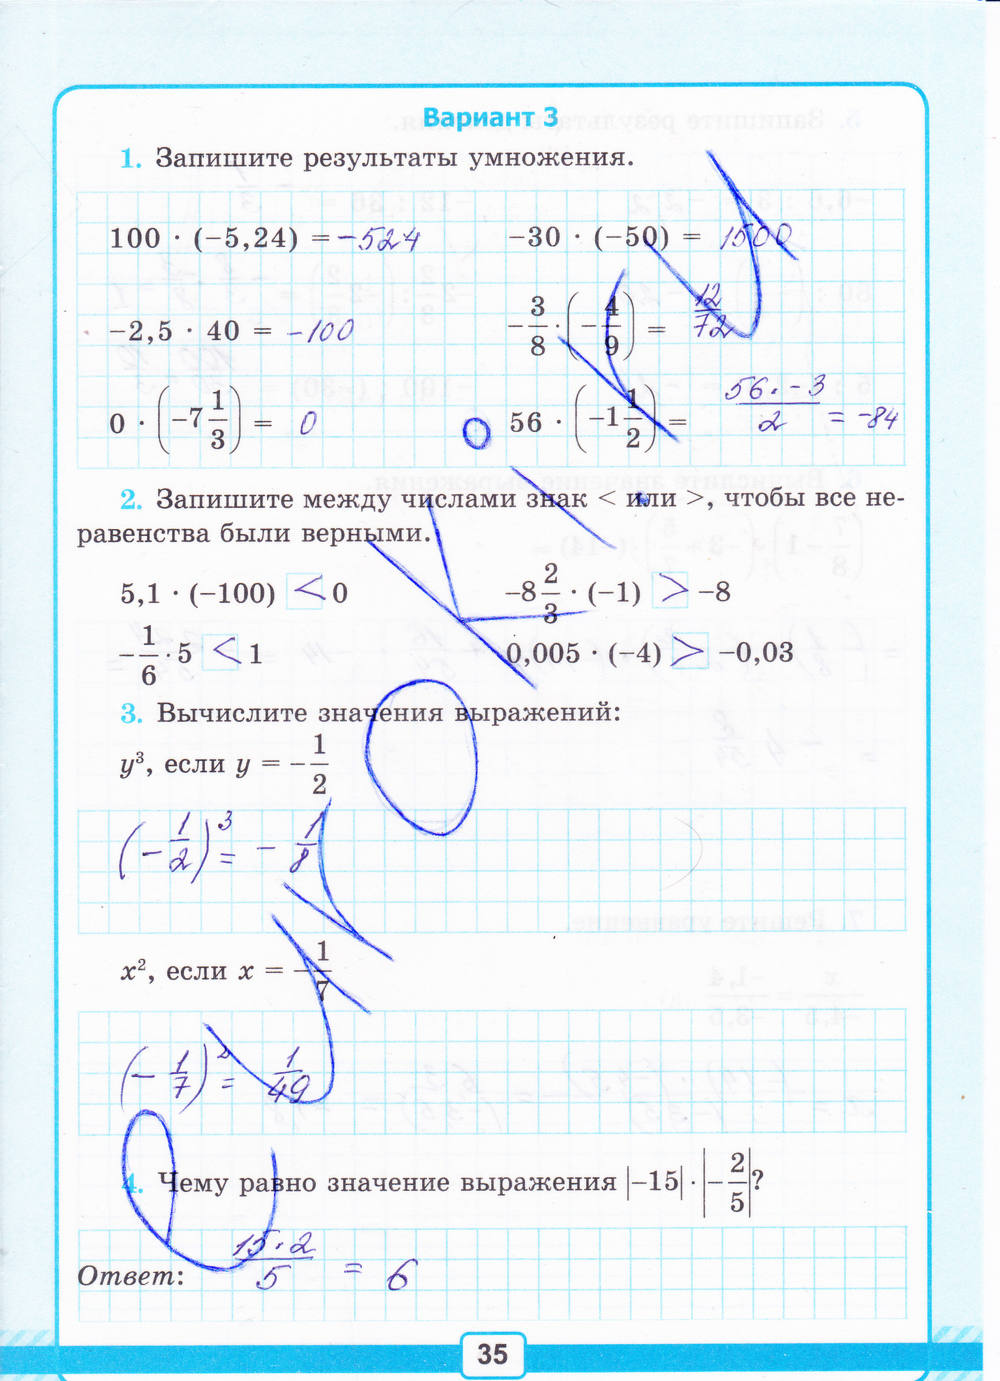 Вариант 3
1. Запишите результаты умножения.
100 · (−5,24) = −524
−30 · (−50) = 1500
−2,5 · 40 = −100
−3/8 · (−4/9) = 12/72
0 · (−7 1/3) = 0
56 · (−1 1/2) = 56·−3/2 = −84
2. Запишите между числами знак < или >, чтобы все не-
равенства были верными.
5,1 · (−100) < 0
−8 2/3 · (−1) > −8
−1/6 · 5 < 1
0,005 · (−4) > −0,03
3. Вычислите значения выражений:
y³, если y = −1/2
(−1/2)³ = −1/8
x², если x = −1/7
(−1/7)² = 1/49
4. Чему равно значение выражения |−15| · |−2/5|?
Ответ: 15·2/5 = 6
35